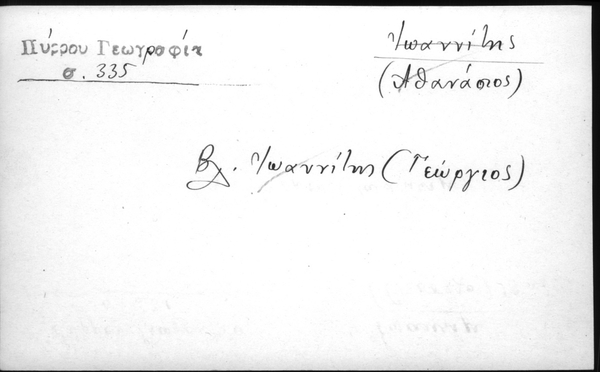 Πύρρου Γεωγραφία
σ. 335
Ἰωαννίτης
(Ἀθανάσιος)
Βλ. Ἰωαννίτης (Γεώργιος)